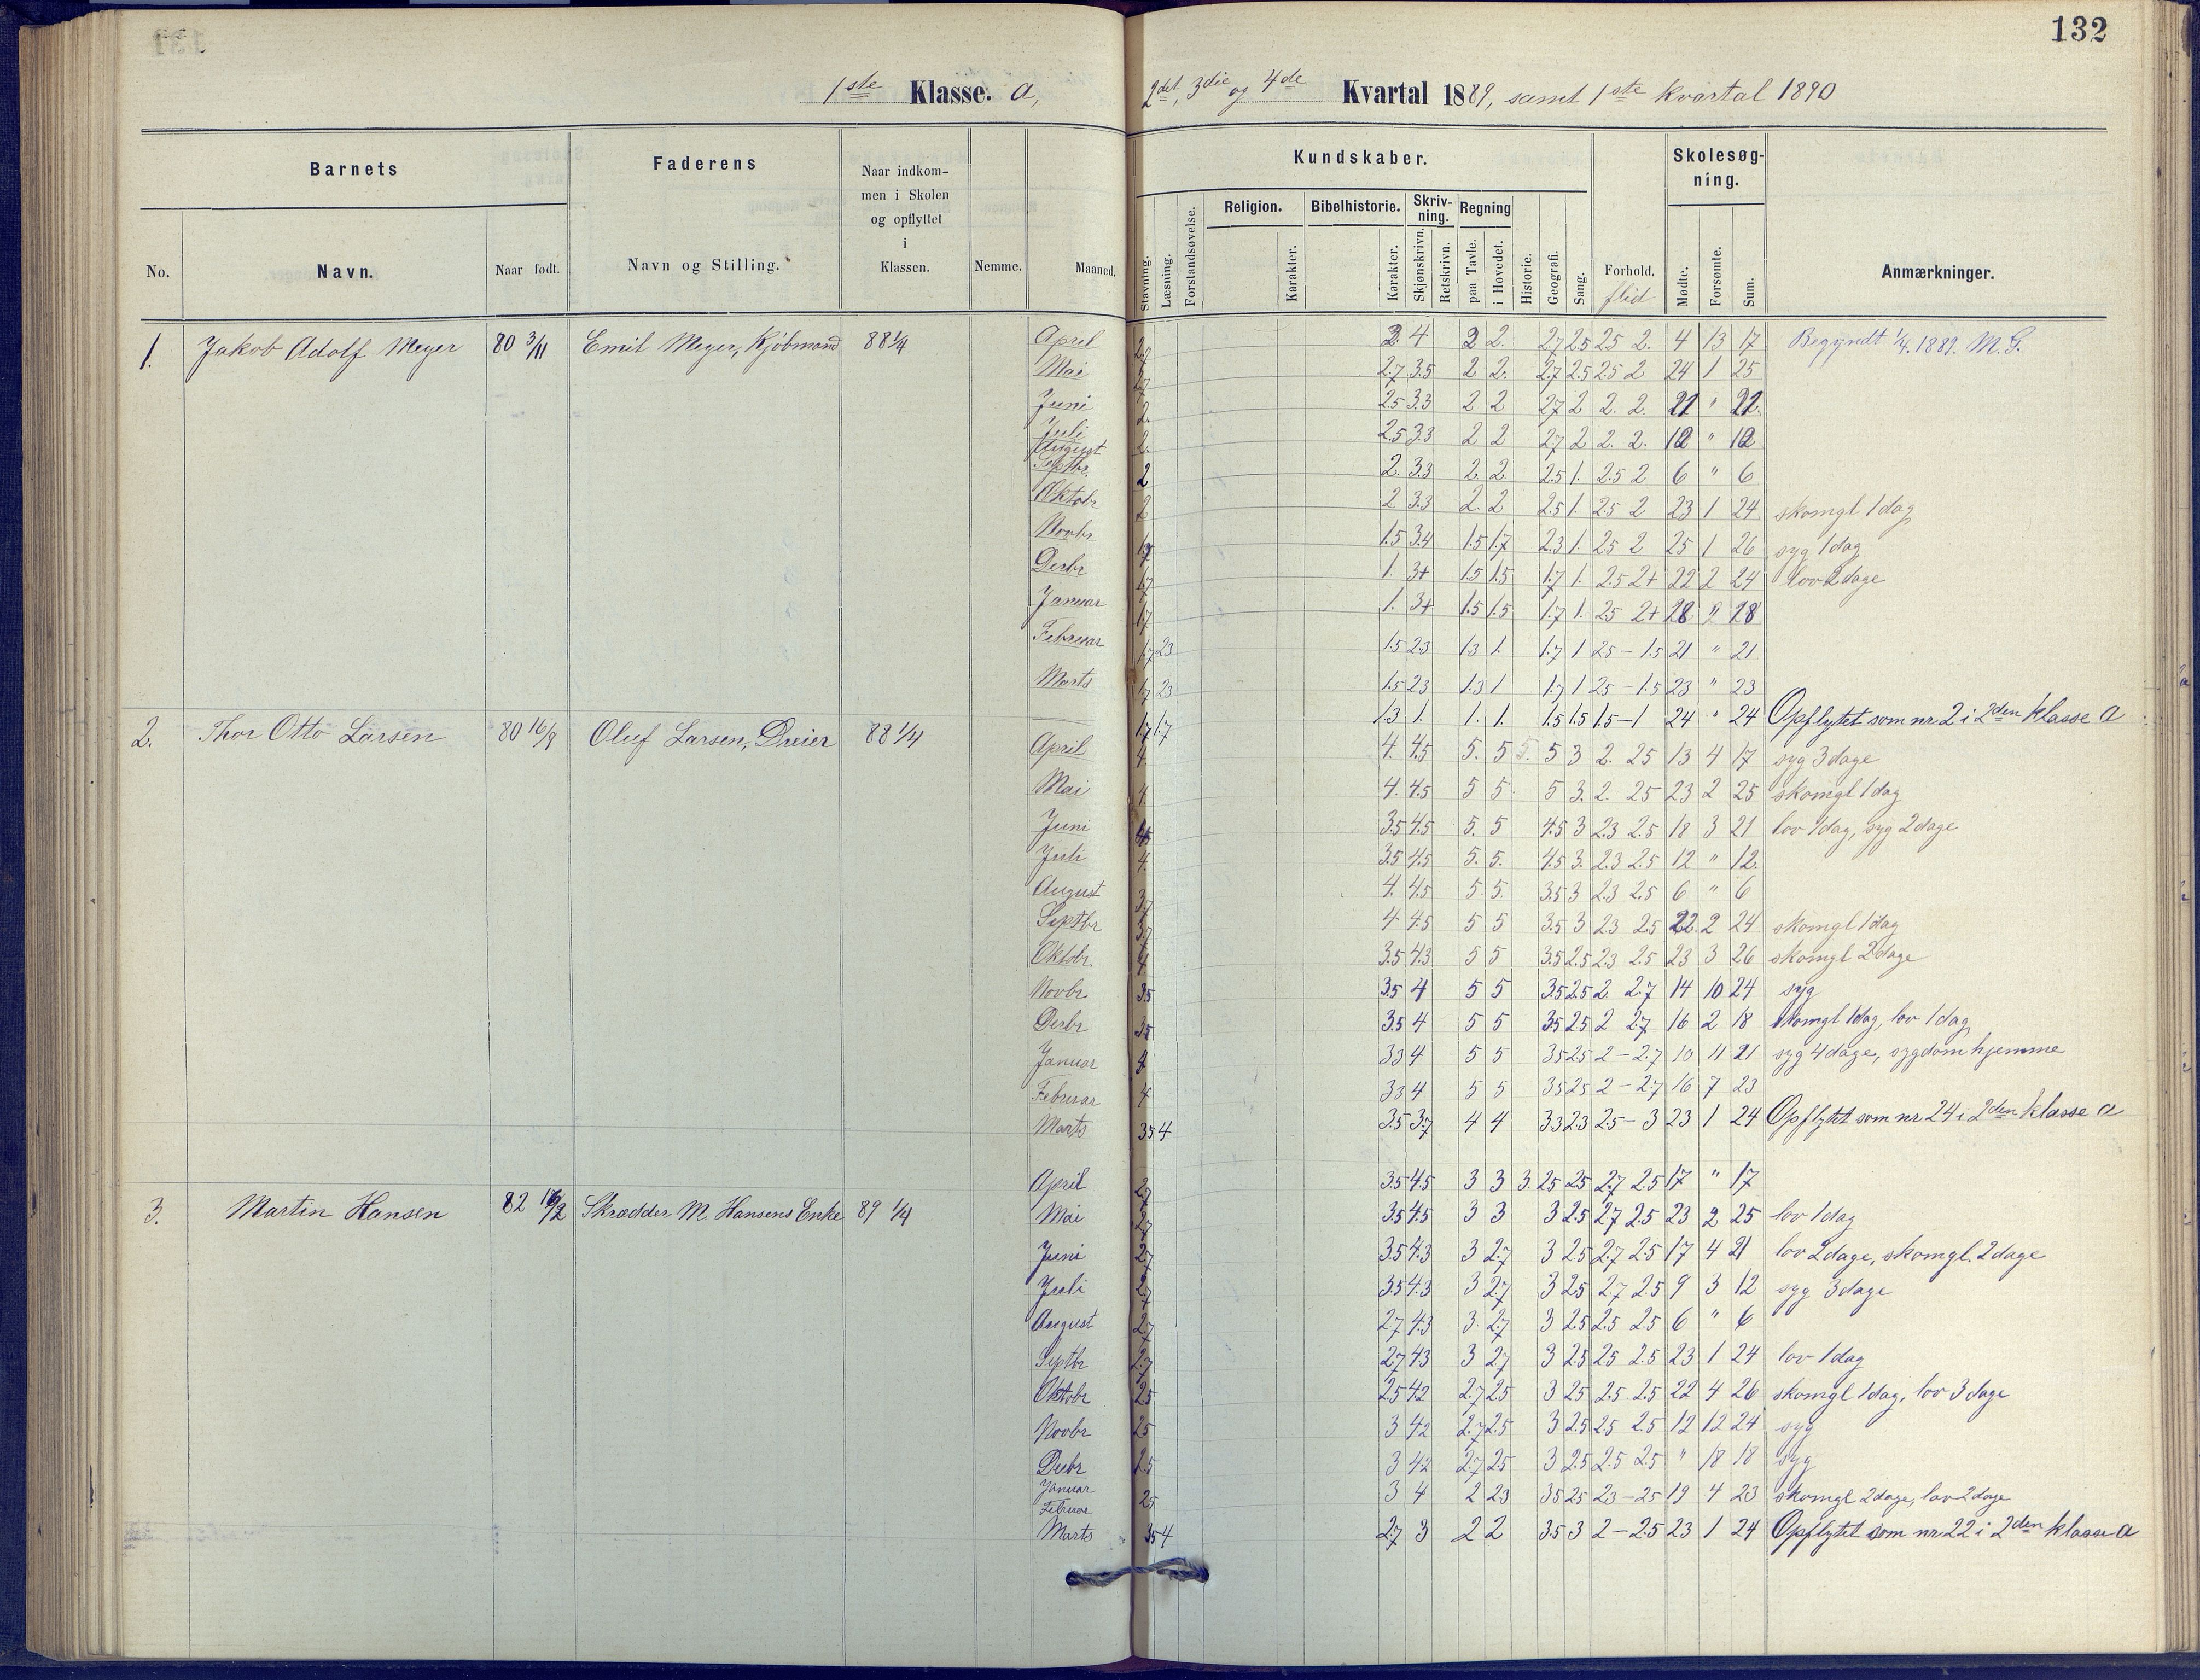 132
1ste Klasse. a,
2det, 3die og 4de Kvartal 1889, samt 1ste kvartal 1890
Barnets
Faderens
Naar indkom-
men i Skolen
og opflyttet
i
Klassen.
No.
Navn.
Naar født.
Navn og Stilling.
Nemme.
Maaned.
Kundskaber.
Skolesøg-
ning.
Religion.
Bibelhistorie.
Skriv-
ning.
Regning
Stavning.
Læsning.
Forstandsøvelse.
Karakter.
Karakter.
Skjønskrivn.
Retskrivn.
paa Tavle.
i Hovedet.
Historie.
Geografi.
Sang.
Forhold.
flid
Mødte.
Forsømte.
Sum.
Anmærkninger.
1. Jakob Adolf Meyer 80 3/11 Emil Meyer, Kjøbmand 88 1/4
April 2.7 4 2 2. 2.7 2.5 2.5 2. 4 13 17 Begyndt 1/4. 1889. M.G.
Mai 2.7 2.7 3.5 2 2. 2.7 2.5 2.5 2 24 1 25
Juni 2. 2.5 3.3 2 2 2.7 2 2. 2.
Juli 2. 2.5 3.3 2 2 2.7 2 2. 2. "
August
Septbr 2 2. 3.3 2 2 2.5 1. 2.5 2 6 " 6
Oktobr 2 2 3.3 2. 2 2.5 1. 2.5 2 23 1 24 skomgl 1 dag
Novbr 1.5 3.4 1.5 1.7 2.3 1. 2.5 2 25 1 26 syg 1 dag
Desbr 1.7 1. 3+ 1.5 1.5 1.7 1. 2.5 2+ 22 2 24 lov 2 dage
Januar 1.7 1. 3+ 1.5 1.5 1.7 1. 2.5 2+ 18 " 18
Februar 1.7 2.3 1.5 2.3 1.3 1. 1.7 1 2.5 - 1.5 21 " 21
Marts 1.7 2.3 1.5 2.3 1.3 1 1.7 1 2.5 - 1.5 23 " 23
1.7 1.7 1.3 1. 1. 1. 1.5 1.5 1.5 - 1 24 " 24 Opflytet som nr 2 i 2den klasse a
2. Thor Otto Larsen 80 16/9 Oluf Larsen, Dreier 88 1/4
April 4. 4. 4.5 5. 5 5. 5 3 2. 2.5 13 4 17 syg 3 dage
Mai 4. 4. 4.5 5 5. 5 3. 2. 2.5 23 2 25 skomgl 1 dag
Juni 3.5 4.5 5. 5 4.5 3 2.3 2.5 18 3 21 lov 1 dag, syg 2 dage
Juli 4. 3.5 4.5 5. 5. 4.5 3. 2.3 2.5 12 " 12.
August 3.7 4. 4.5 5. 5. 3.5 3 2.3 2.5 6 " 6
Septbr 3.7 4 4.5 5 5 3.5 3 2.3 2.5 22. 2 24 skomgl 1 dag
Oktobr 4 3.5 4.3 5 5 3.5 2.5 2.3 2.5 23 3 26 skomgl 2 dage
Novbr 3.5 3.5 4 5 5 3.5 2.5 2. 2.7 14 10 24 syg
Desbr 3.5 3.5 4 5 5 3.5 2.5 2 2.7 16 2 18 skomgl 1 dag, lov 1 dag
Januar 4 3.3 4 5 5 3.5 2.5 2 - 2.7 10 11 21 syg 4 dage, sygdom hjemme
Februar 4 3.3 4 5 5 3.5 2.5 2 - 2.7 16 7 23
Marts 3.5 4 3.5 3.7 4 4 3.3 2.3 2.5 - 3 23 1 24 Opflytet som nr 24 i 2den klasse a
April 2.7 3.5 4.5 3 3 3. 2.5 2.5 2.7 2.5 17 " 17
3. Martin Hansen 82 Skrædder M. Hansens Enke 89 1/4
Mai 2.7 3.5 4.5 3 3 3 2.5 2.7 2.5 23 2 25 lov 1 dag
Juni 2.7 3.5 4.3 3 2.7 3 2.5 2.7 2.5 17 4 21 lov 2 dage, skomgl. 2 dage
Juli 2.7 3.5 4.3 3 2.7 3 2.5 2.7 2.5 9 3 12 syg 3 dage
August 2.7 2.7 4.3 3. 2.7 3 2.5 2.5 2.5 6 " 6
Septbr 2.7 2.7 4.3 3 2.7 3 2.5 2.5 2.5 23 1 24 lov 1 dag
Oktobr 2.5 2.5 4.2 2.7 2.5 3 2.5 2.5 2.5 22 4 26 skomgl 1 dag, lov 3 dage
Novbr 2.5 3 4.2 2.7 2.5 3 2.5 2.5 2.5 12 12 24 syg
Desbr 2.5 3 4.2 2.7 2.5 3 2.5 2.5 2.5 " 18 18 syg
Januar 2.5 3 4 2 2.3 3.5 2.5 2.3 - 2.5 19 4 23 skomgl 2 dage, lov 2 dage
Februar
Marts 3.5 4 2.7 3 2 2 3.5 3 2 - 2.5 23 1 24 Opflytet som nr 22 i 2den klasse a